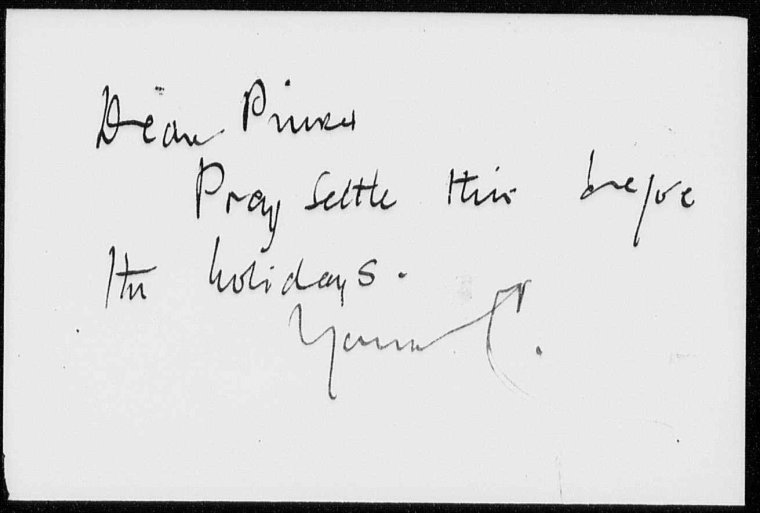 Dear Pinker
Pray settle this before
the holidays.
Yours C.